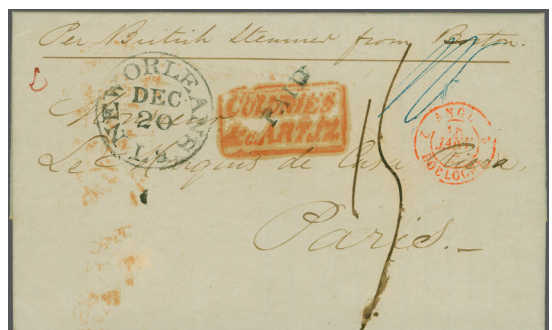 Per British Steamer from Boston.
NEW ORLEANS
DEC
20
LA
PAID
COLONIES
&c. ART. 12
2 ANGL. 2
BOULOGNE
Monsieur
Le Marquis de Casa
Paris.
15